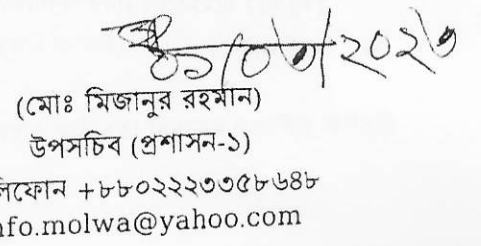 ০১/০৩/২০২৩
(মোঃ মিজানুর রহমান)
উপসচিব (প্রশাসন-১)
লিফোন +৮৮০২২২৩৩৫৮৬৪৮
nfo.molwa@yahoo.com